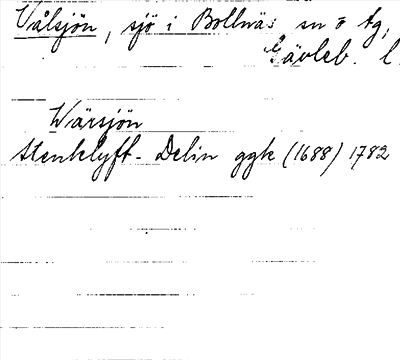 Vålsjön, sjö i Bollnäs sn o tg,
Gävleb. l.
Wärsjön
Stenklyft- Delin ggk (1688) 1782